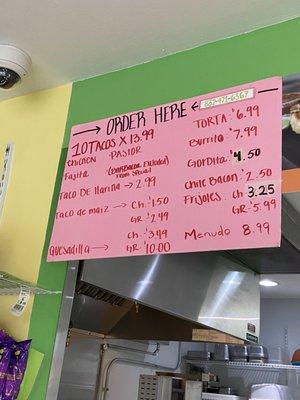 → ORDER HERE ←
10 TACOS X 13.99
CHICKEN PASTOR
Fajita
Taco De Harina → 2.99
Taco de maiz → Ch. 1.50
GR. 2.49
Quesadilla → Ch. 3.99
GR. 10.00
TORTA: $6.99
Burrito: $7.99
Gordita: 4.50
Chile Bacon: 2.50
Frijoles: Ch. 3.25
GR. 5.99
Menudo 8.99